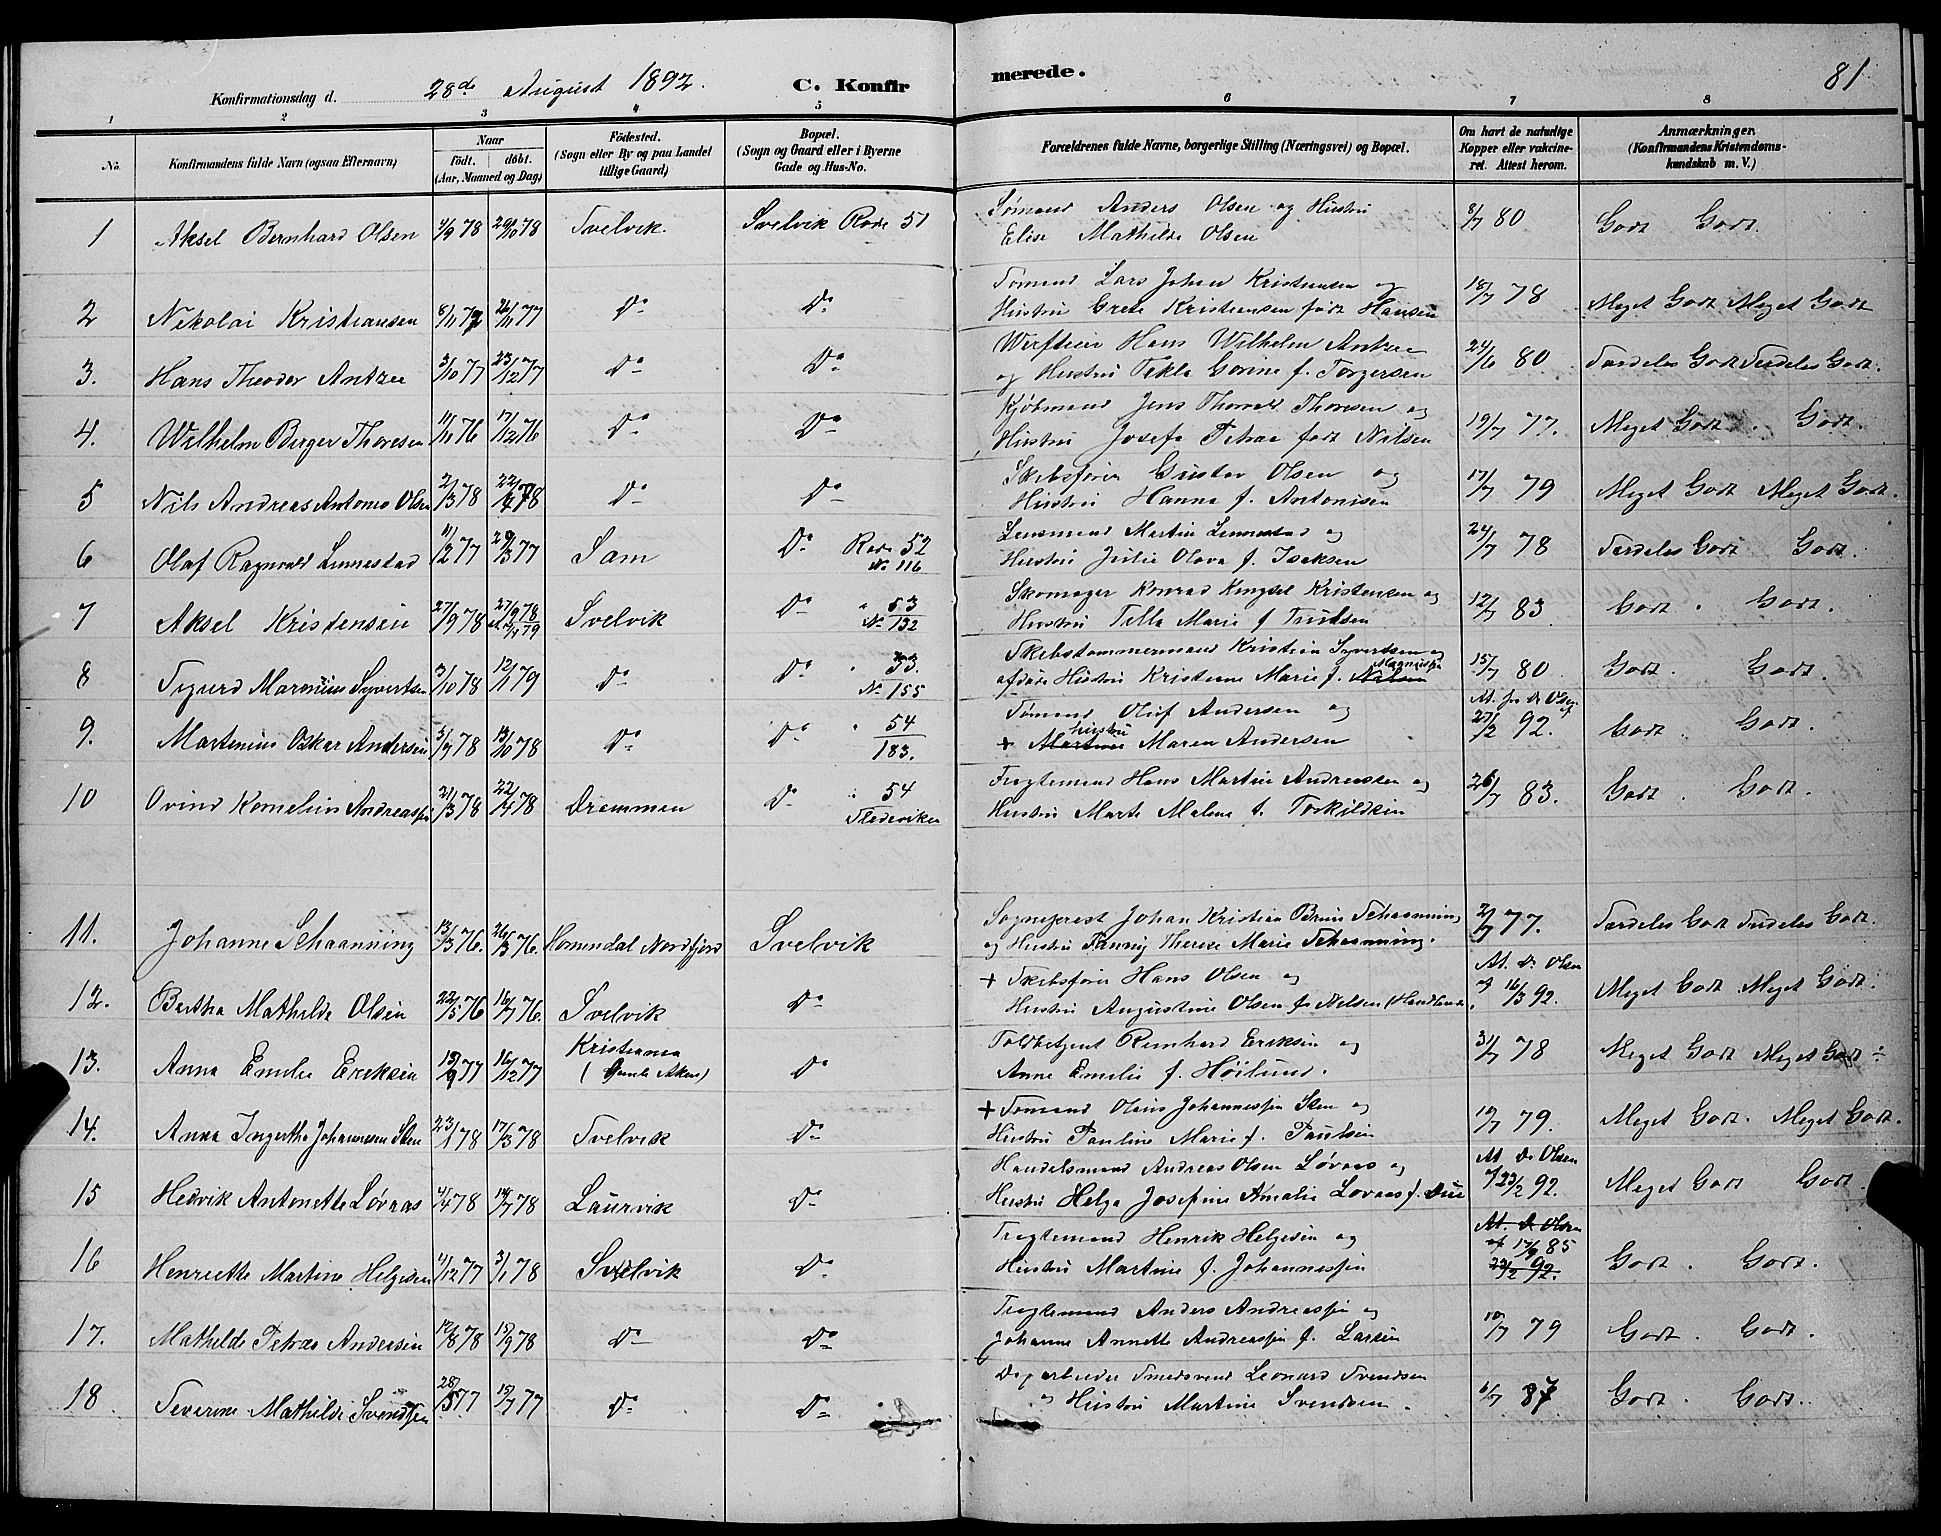 28de August 1892.
C. Konfirmerede.
81
Konfirmationsdag d.
1 2 3 4 5 6 7 8
No.
Konfirmandens fulde Navn (ogsaa Efternavn)
Naar
födt. döbt.
(Aar, Maaned og Dag)
Födested.
(Sogn eller By og paa Landet
tillige Gaard)
Bopæl.
(Sogn og Gaard eller i Byerne
Gade og Hus-No.
Forældrenes fulde Navne, borgerlige Stilling (Næringsvei) og Bopæl.
Om havt de naturlige
Kopper eller vakcine-
ret. Attest herom.
Anmærkninger.
(Konfirmandens Kristendoms-
kundskab m. V.)
1 Aksel Bernhard Olsen 4/9 78 20/10 78 Svelvik. Svelvik Rode 51 Sømand Anders Olsen og Hustru
Elise Mathilde Olsen 8/7 80 Godt Godt.
2 Nikolai Kristiansen 8/11 77 26/11 77 Do Do Sømand Lars Johan Kristiansen og
Hustru Grete Kristiansen født Hansen 18/7 78 Meget Godt Meget Godt
3. Hans Theodor Antzee 3/10 77 23/12 77 Do Do Werfteier Hans Wilhelm Antzee
og Hustru Tekla Gorine f. Torgersen 24/6 80. Særdeles Godt Særdeles Godt.
4. Wilhelm Berger Thoresen 11/11 76 17/12 76 Do Do Kjøbmand Jens Thorvald Thoresen og
Hustru Josefa Petrea født Nilsen 19/7 77. Meget Godt. Godt.
5 Nils Andreas Antonio Olsen 2/3 78 22/4 78 Do Do Skibsfører Gustav Olsen og
Hustru Hanna f. Antonisen 17/7 79 Meget Godt Meget Godt.
6 Olaf Ragnvald Linnestad 11/2 77 29/3 77 Sam Do Rode 52
No 116 Lensmand Martin Linnestad og
Hustru Julie Olava f. Isaksen 24/7 78 Særdeles Godt Godt.
7 Aksel Kristensen 27/9 78 Svelvik Do " 53
No 132 Skomager Konrad Kristensen og
Hustru Tilla Marie f. Trulsen 12/7 83 Godt. Godt.
8 Sigurd Marenius Syvertsen 3/10 78 12/1 79 Do Do " 53.
No 155 Skibstømmermand Kristian Syvertsen og
afdøde Hustru Kristiane Marie f. 15/7 80 Godt. Godt.
9. Martenius Oskar Andersen 3/7 78 13/10 78 Do Do " 54
183. Sømand Oluf Andersen og
+ Hustru Maren Andersen At. fra Dr Olsen af
27/2 92. Godt. Godt.
10 Ovind Kornelius Andreassen 21/3 78 22/4 78 Drammen Do " 54
Fladeviken Fragtemand Hans Martin Andreassen og
Hustru Marte Malene f. Torkildsen 26/7 83. Godt. Godt.
11. Johanne Schaanning 13/3 76. 26/3 76. Hornendal Nordfjord Svelvik Sogneprest Johan Kristian Bruun Schaanning
og Hustru Fanny Therese Marie Schaanning. 2/7 77. Særdeles Godt Særdeles Godt.
12. Bertha Mathilde Olsen 22/5 76 16/7 76. Svelvik Do + Skibsfører Hans Olsen og
Hustru Augustine Olsen f. Nilsen At. Dr Olsen
af 16/3 92. Meget Godt. Meget Godt.
13. Anna Emilie Eriksen 13/9 77 16/12 77 Kristiania
(Gamle Aker) Do Toldbetjent Reinhard Eriksen og
Anne Emilie f. Høilund. 31/7 78 Meget Godt Meget Godt ÷
14. Anna Ingertha Johannessen Sten 23/1 78 17/3 78 Svelvik Do + Sømand Olaus Johannessen Sten og
Hustru Pauline Marie f. Paulsen 10/7 79. Meget Godt. Meget Godt.
15 Hedvik Antonette Løvaas 4/4 78 14/7 78 Laurvik Do Handelsmand Andreas Olsen Løvaas og
Hustru Helga Josefine Amalie Løvaas f. Due At. Dr Olsen
af 23/2 92. Meget Godt Godt.
16 Henriette Martine Helgesen 4/12 77 3/1 78 Svelvik Do. Fragtemand Henrik Helgesen og
Hustru Martine f. Johannessen At. Dr Olsen
af 17/9 85
23/2 92. Godt. Godt.
17. Mathilde Petrea Andersen 12/8 78 15/9 78 Do Do Fragtemand Anders Andreassen og
Johanne Annette Andreassen f. Larsen 10/7 79 Godt. Godt.
18 Severine Mathilde Svendsen 28/5 77 15/7 77 Do Do Smedsvend Leonard Svendsen
og Hustru Martine Svendsen. 6/7 87 Godt. Godt.